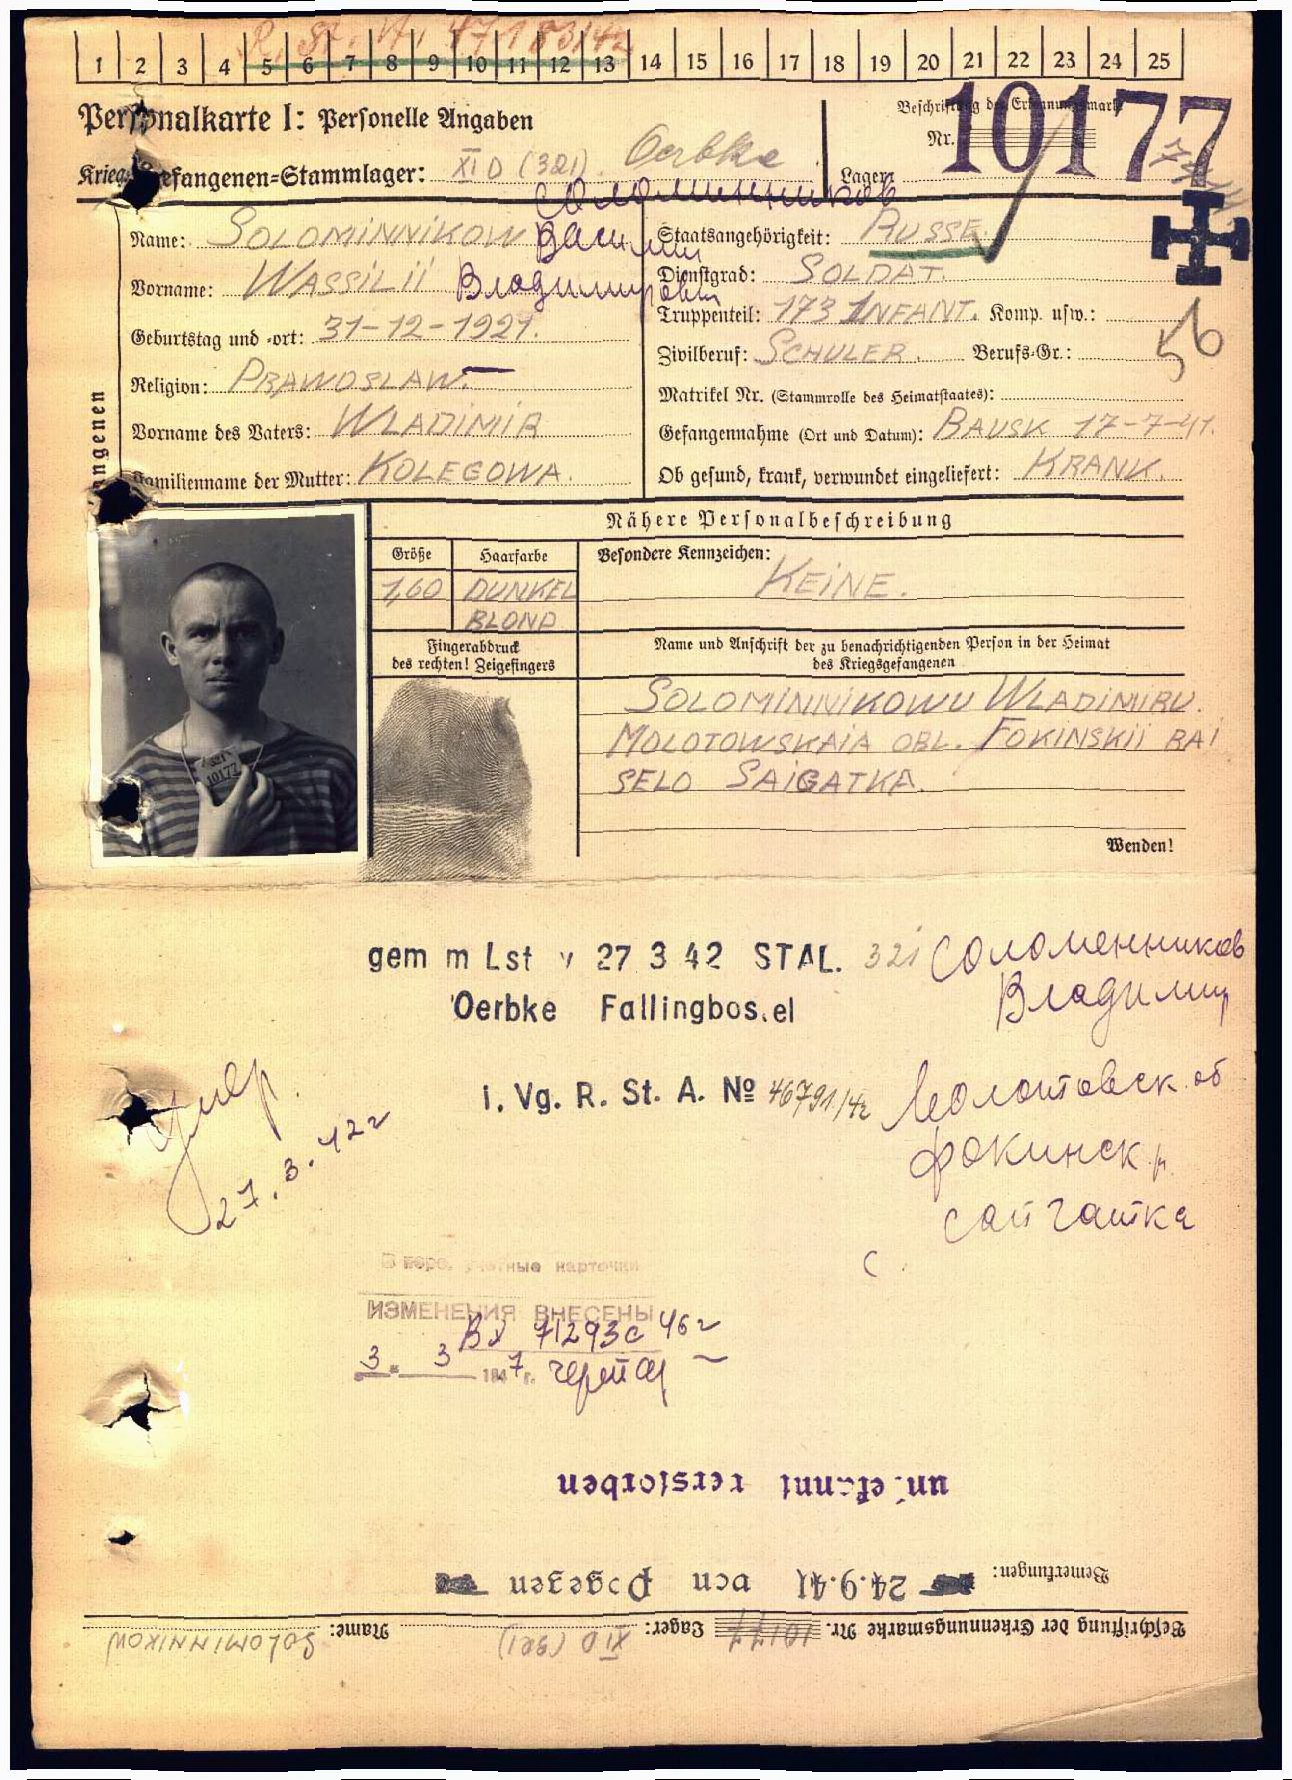 R. St. A. 47183/42
1 2 3 4 5 6 7 8 9 10 11 12 13 14 15 16 17 18 19 20 21 22 23 24 25
Personalkarte I: Personelle Angaben
Beschriftung der Erkennungsmarke
Nr. 10177
Kriegsgefangenen-Stammlager: XI D (321). Oerbke
Lager:
Соломинников
Name: SOLOMINNIKOW Василий
Vorname: WASSILII Владимирович
Geburtstag und -ort: 31-12-1921.
Religion: PRAWOSLAW.
Vorname des Vaters: WLADIMIR
Familienname der Mutter: KOLEGOWA.
Staatsangehörigkeit: RUSSE.
Dienstgrad: SOLDAT.
Truppenteil: 173 INFANT. Komp. usw.:
56
Zivilberuf: SCHULER. Berufs-Gr.:
Matrikel Nr. (Stammrolle des Heimatstaates):
Gefangennahme (Ort und Datum): BAUSK 17-7-41.
Ob gesund, krank, verwundet eingeliefert: KRANK.
angenen
Nähere Personalbeschreibung
Größe Haarfarbe Besondere Kennzeichen:
1,60 DUNKEL KEINE.
BLOND
Fingerabdruck
des rechten! Zeigefingers
Name und Anschrift der zu benachrichtigenden Person in der Heimat
des Kriegsgefangenen
SOLOMINNIKOWU WLADIMIRU.
MOLOTOWSKAIA OBL. FOKINSKII RAI
SELO SAIGATKA.
321
10177
Wenden!
gem m Lst v 27 3 42 STAL. 321
Oerbke Fallingbos.el
Соломенников
Владимир
i. Vg. R. St. A. No 46791/42
Молотовск. об
Фокинск. р.
Сайгатка
с.
умер.
27.3.42 г
В перс. учетные карточки
ИЗМЕНЕНИЯ ВНЕСЕНЫ
Вх 71293с 46 г
3. 3 1947 г.
unbekannt verstorben
Bemerkungen: 24.9.41 von Pogegen
Beschriftung der Erkennungsmarke Nr. 10177 Lager: XI D (321) Name: SOLOMINNIKOW